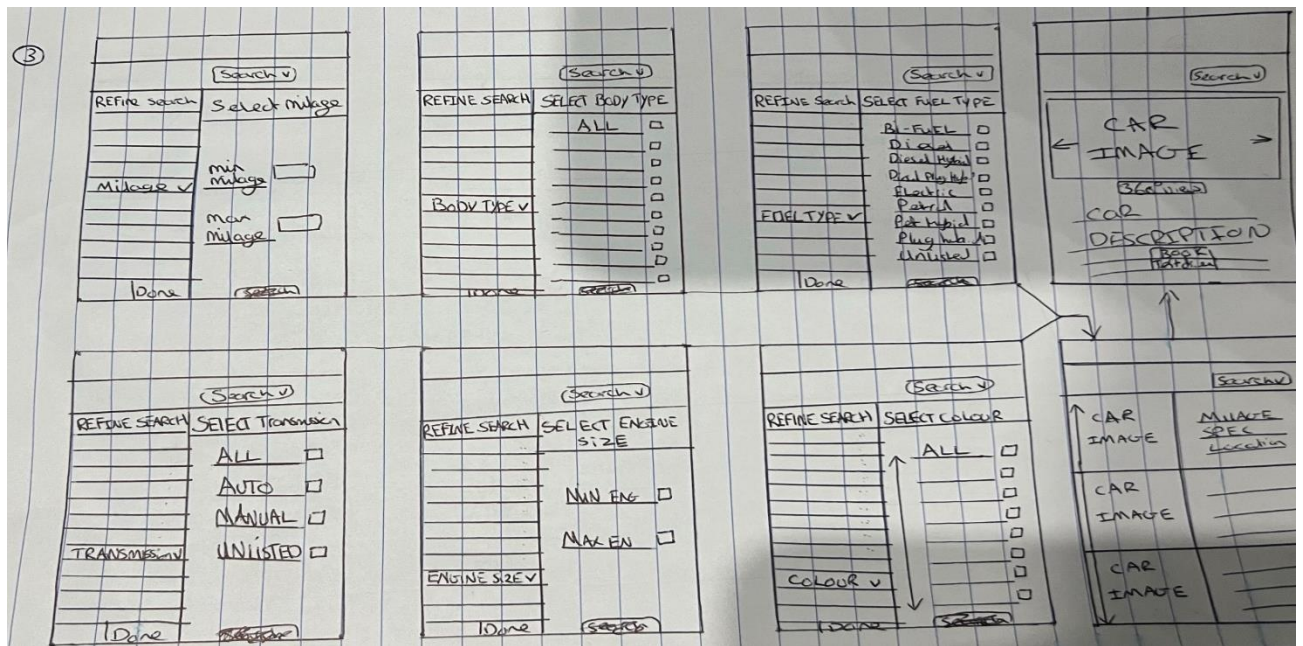 3
Search v
REFINE Search
Select milage
min
milage
Milage v
max
milage
Done
Search v
REFINE SEARCH
SELECT BODY TYPE
ALL
BODY TYPE v
Done
Search v
REFINE Search
SELECT FUEL TYPE
Bi-FUEL
Diesel
Diesel Hybrid
Electric
Petrol
FUEL TYPE v
Pet Hybrid
Unlisted
Done
Search v
CAR
IMAGE
360° view
CAR
DESCRIPTION
BOOK
Search v
REFINE SEARCH
SELECT Transmission
ALL
AUTO
MANUAL
TRANSMISSION v
UNLISTED
Done
Search v
REFINE SEARCH
SELECT ENGINE
SIZE
MIN ENG
MAX EN
ENGINE SIZE v
Done
Search
Search v
REFINE SEARCH
SELECT COLOUR
ALL
COLOUR v
Done
Search v
CAR
IMAGE
MILAGE
SPEC
Location
CAR
IMAGE
CAR
IMAGE